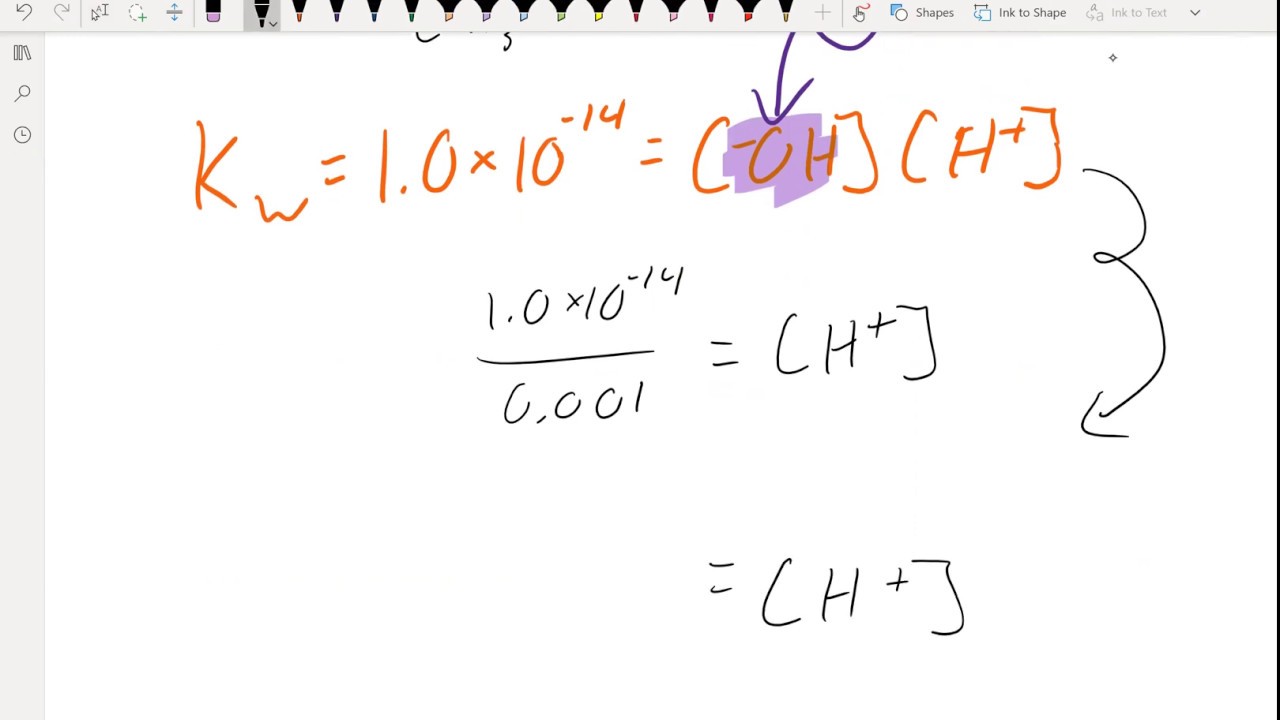 Shapes Ink to Shape Ink to Text
Kw = 1.0×10⁻¹⁴ = [⁻OH] [H⁺]
1.0×10⁻¹⁴
0.001
= [H⁺]
= [H⁺]